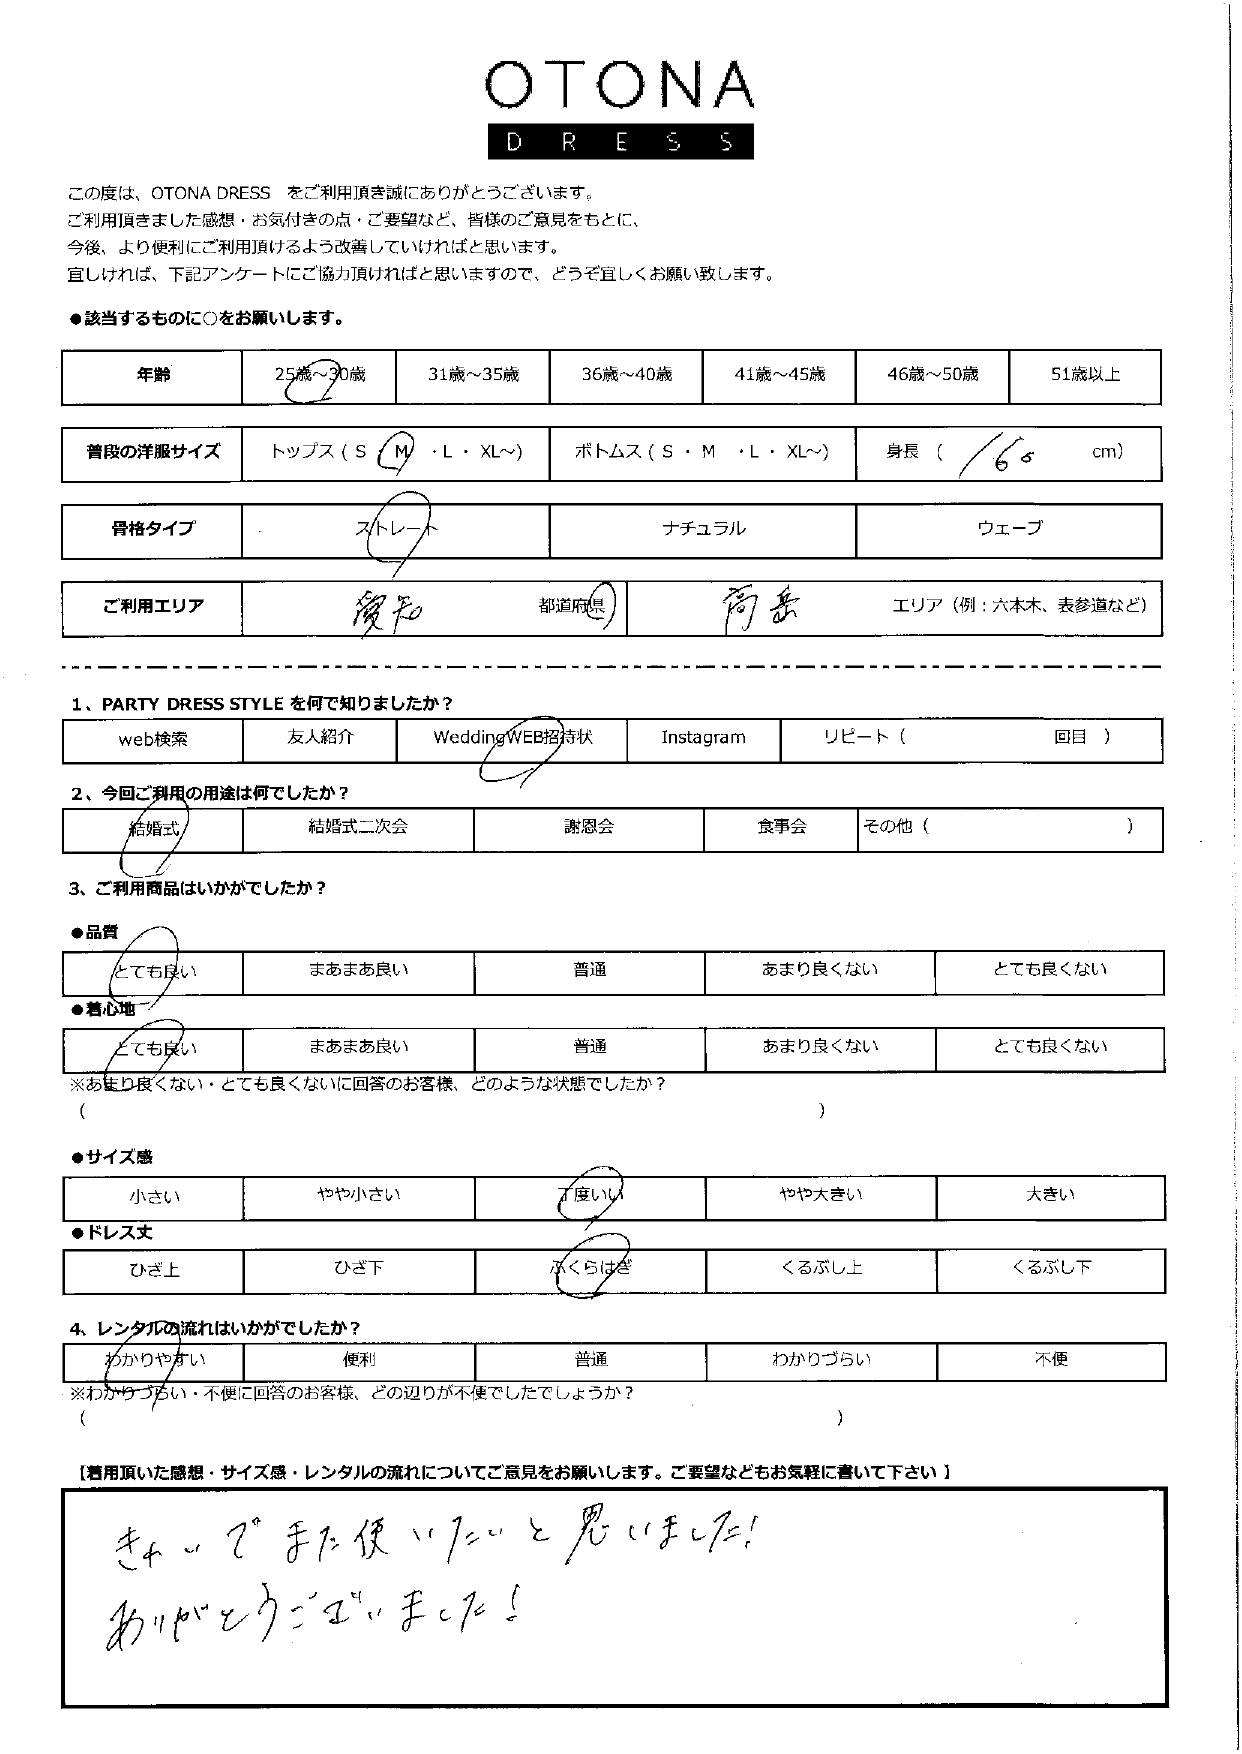 OTONA
DRESS
この度は、OTONA DRESS をご利用頂き誠にありがとうございます。
ご利用頂きました感想・お気付きの点・ご要望など、皆様のご意見をもとに、
今後、より便利にご利用頂けるよう改善していければと思います。
宜しければ、下記アンケートにご協力頂ければと思いますので、どうぞ宜しくお願い致します。
●該当するものに○をお願いします。
年齢 25歳～30歳 31歳～35歳 36歳～40歳 41歳～45歳 46歳～50歳 51歳以上
普段の洋服サイズ トップス ( S ・ M ・L ・ XL～) ボトムス ( S ・ M ・L ・ XL～) 身長 ( 160 cm)
骨格タイプ ストレート ナチュラル ウェーブ
ご利用エリア 愛知 都道府県 高岳 エリア（例：六本木、表参道など）
1、PARTY DRESS STYLE を何で知りましたか？
web検索 友人紹介 WeddingWEB招待状 Instagram リピート（ 回目 ）
2、今回ご利用の用途は何でしたか？
結婚式 結婚式二次会 謝恩会 食事会 その他（ ）
3、ご利用商品はいかがでしたか？
●品質
とても良い まあまあ良い 普通 あまり良くない とても良くない
●着心地
とても良い まあまあ良い 普通 あまり良くない とても良くない
※あまり良くない・とても良くないに回答のお客様、どのような状態でしたか？
( )
●サイズ感
小さい やや小さい 丁度いい やや大きい 大きい
●ドレス丈
ひざ上 ひざ下 ふくらはぎ くるぶし上 くるぶし下
4、レンタルの流れはいかがでしたか？
わかりやすい 便利 普通 わかりづらい 不便
※わかりづらい・不便に回答のお客様、どの辺りが不便でしたでしょうか？
( )
【着用頂いた感想・サイズ感・レンタルの流れについてご意見をお願いします。ご要望などもお気軽に書いて下さい 】
きれいでまた使いたいと思いました!
ありがとうございました!